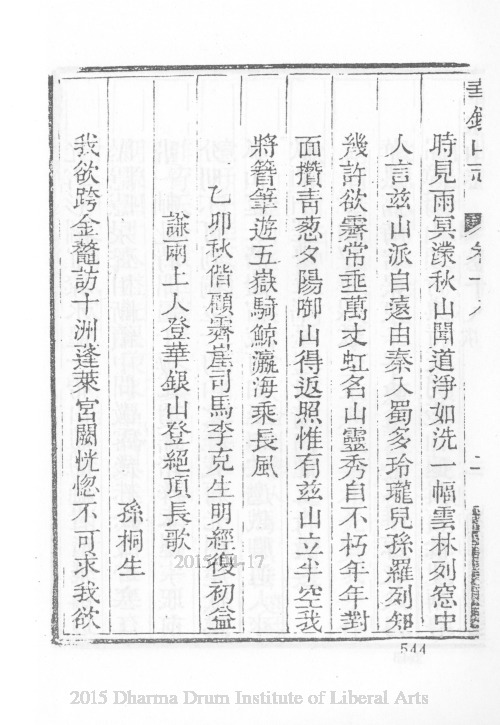 華銀山志 卷十八
時見雨冥濛秋山聞道淨如洗一幅雲林列窓中
人言兹山派自遠由秦入蜀多玲瓏兒孫羅列知
幾許欲霽常垂萬丈虹名山靈秀自不朽年年對
面攢青葱夕陽啣山得返照惟有兹山立半空我
將簪筆遊五嶽騎鯨瀛海乘長風
乙卯秋偕顧霽崖司馬李克生明經復初益
謙兩上人登華銀山登絕頂長歌
孫桐生
我欲跨金鼇訪十洲蓬萊宮闕恍惚不可求我欲
544
2015 Dharma Drum Institute of Liberal Arts